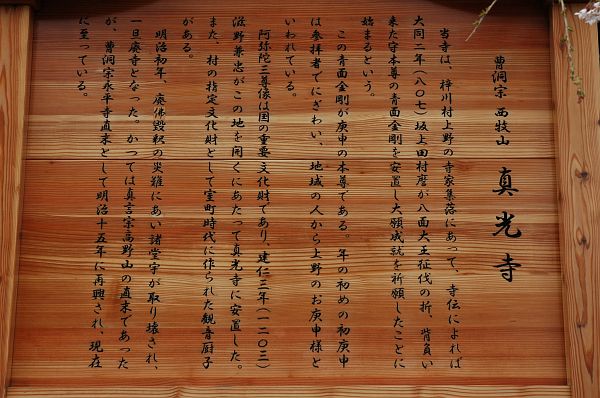 曹洞宗 西牧山 真光寺
当寺は、梓川村上野の寺家集落にあって、寺伝によれば
大同二年(八〇七)坂上田村麿が八面大王征伐の折、背負い
来た守本尊の青面金剛を安置し大願成就を祈願したことに
始まるという。
この青面金剛が庚申の本尊である。年の初めの初庚申
は参拝者でにぎわい、地域の人から上野のお庚申様と
いわれている。
阿弥陀三尊像は国の重要文化財であり、建仁三年(一二〇三)
滋野兼忠がこの地を開くにあたって真光寺に安置した。
また、村の指定文化財として室町時代に作られた観音厨子
がある。
明治初年、廃佛毀釈の災難にあい諸堂宇が取り壊され、
一旦廃寺となった。かつては真言宗高野山の直末であった
が、曹洞宗永平寺直末として明治十五年に再興され、現在
に至っている。